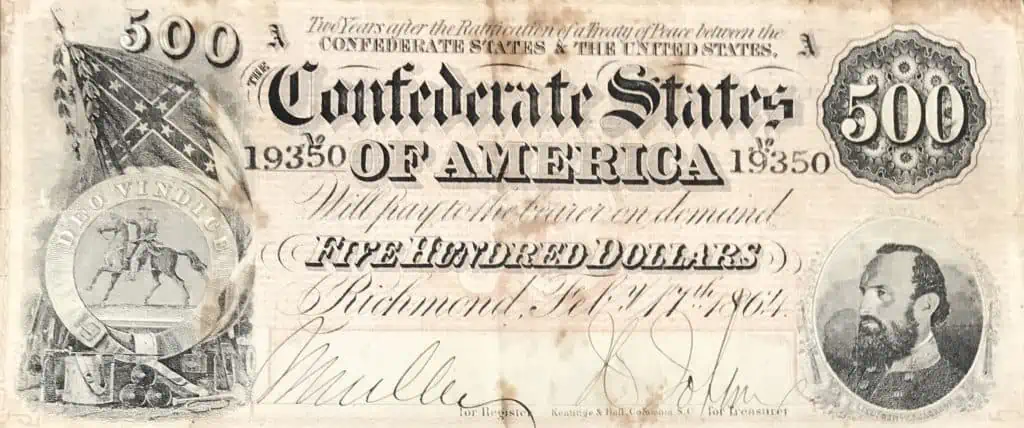 500
A Two Years after the Ratification of a Treaty of Peace between the A
CONFEDERATE STATES & THE UNITED STATES.
THE
Confederate States
500
No 19350 OF AMERICA No 19350
DEO VINDICE
Will pay to the bearer on demand
FIVE HUNDRED DOLLARS
Richmond, Feby. 17th 1864.
for Register Keatinge & Ball, Columbia S.C. for Treasurer